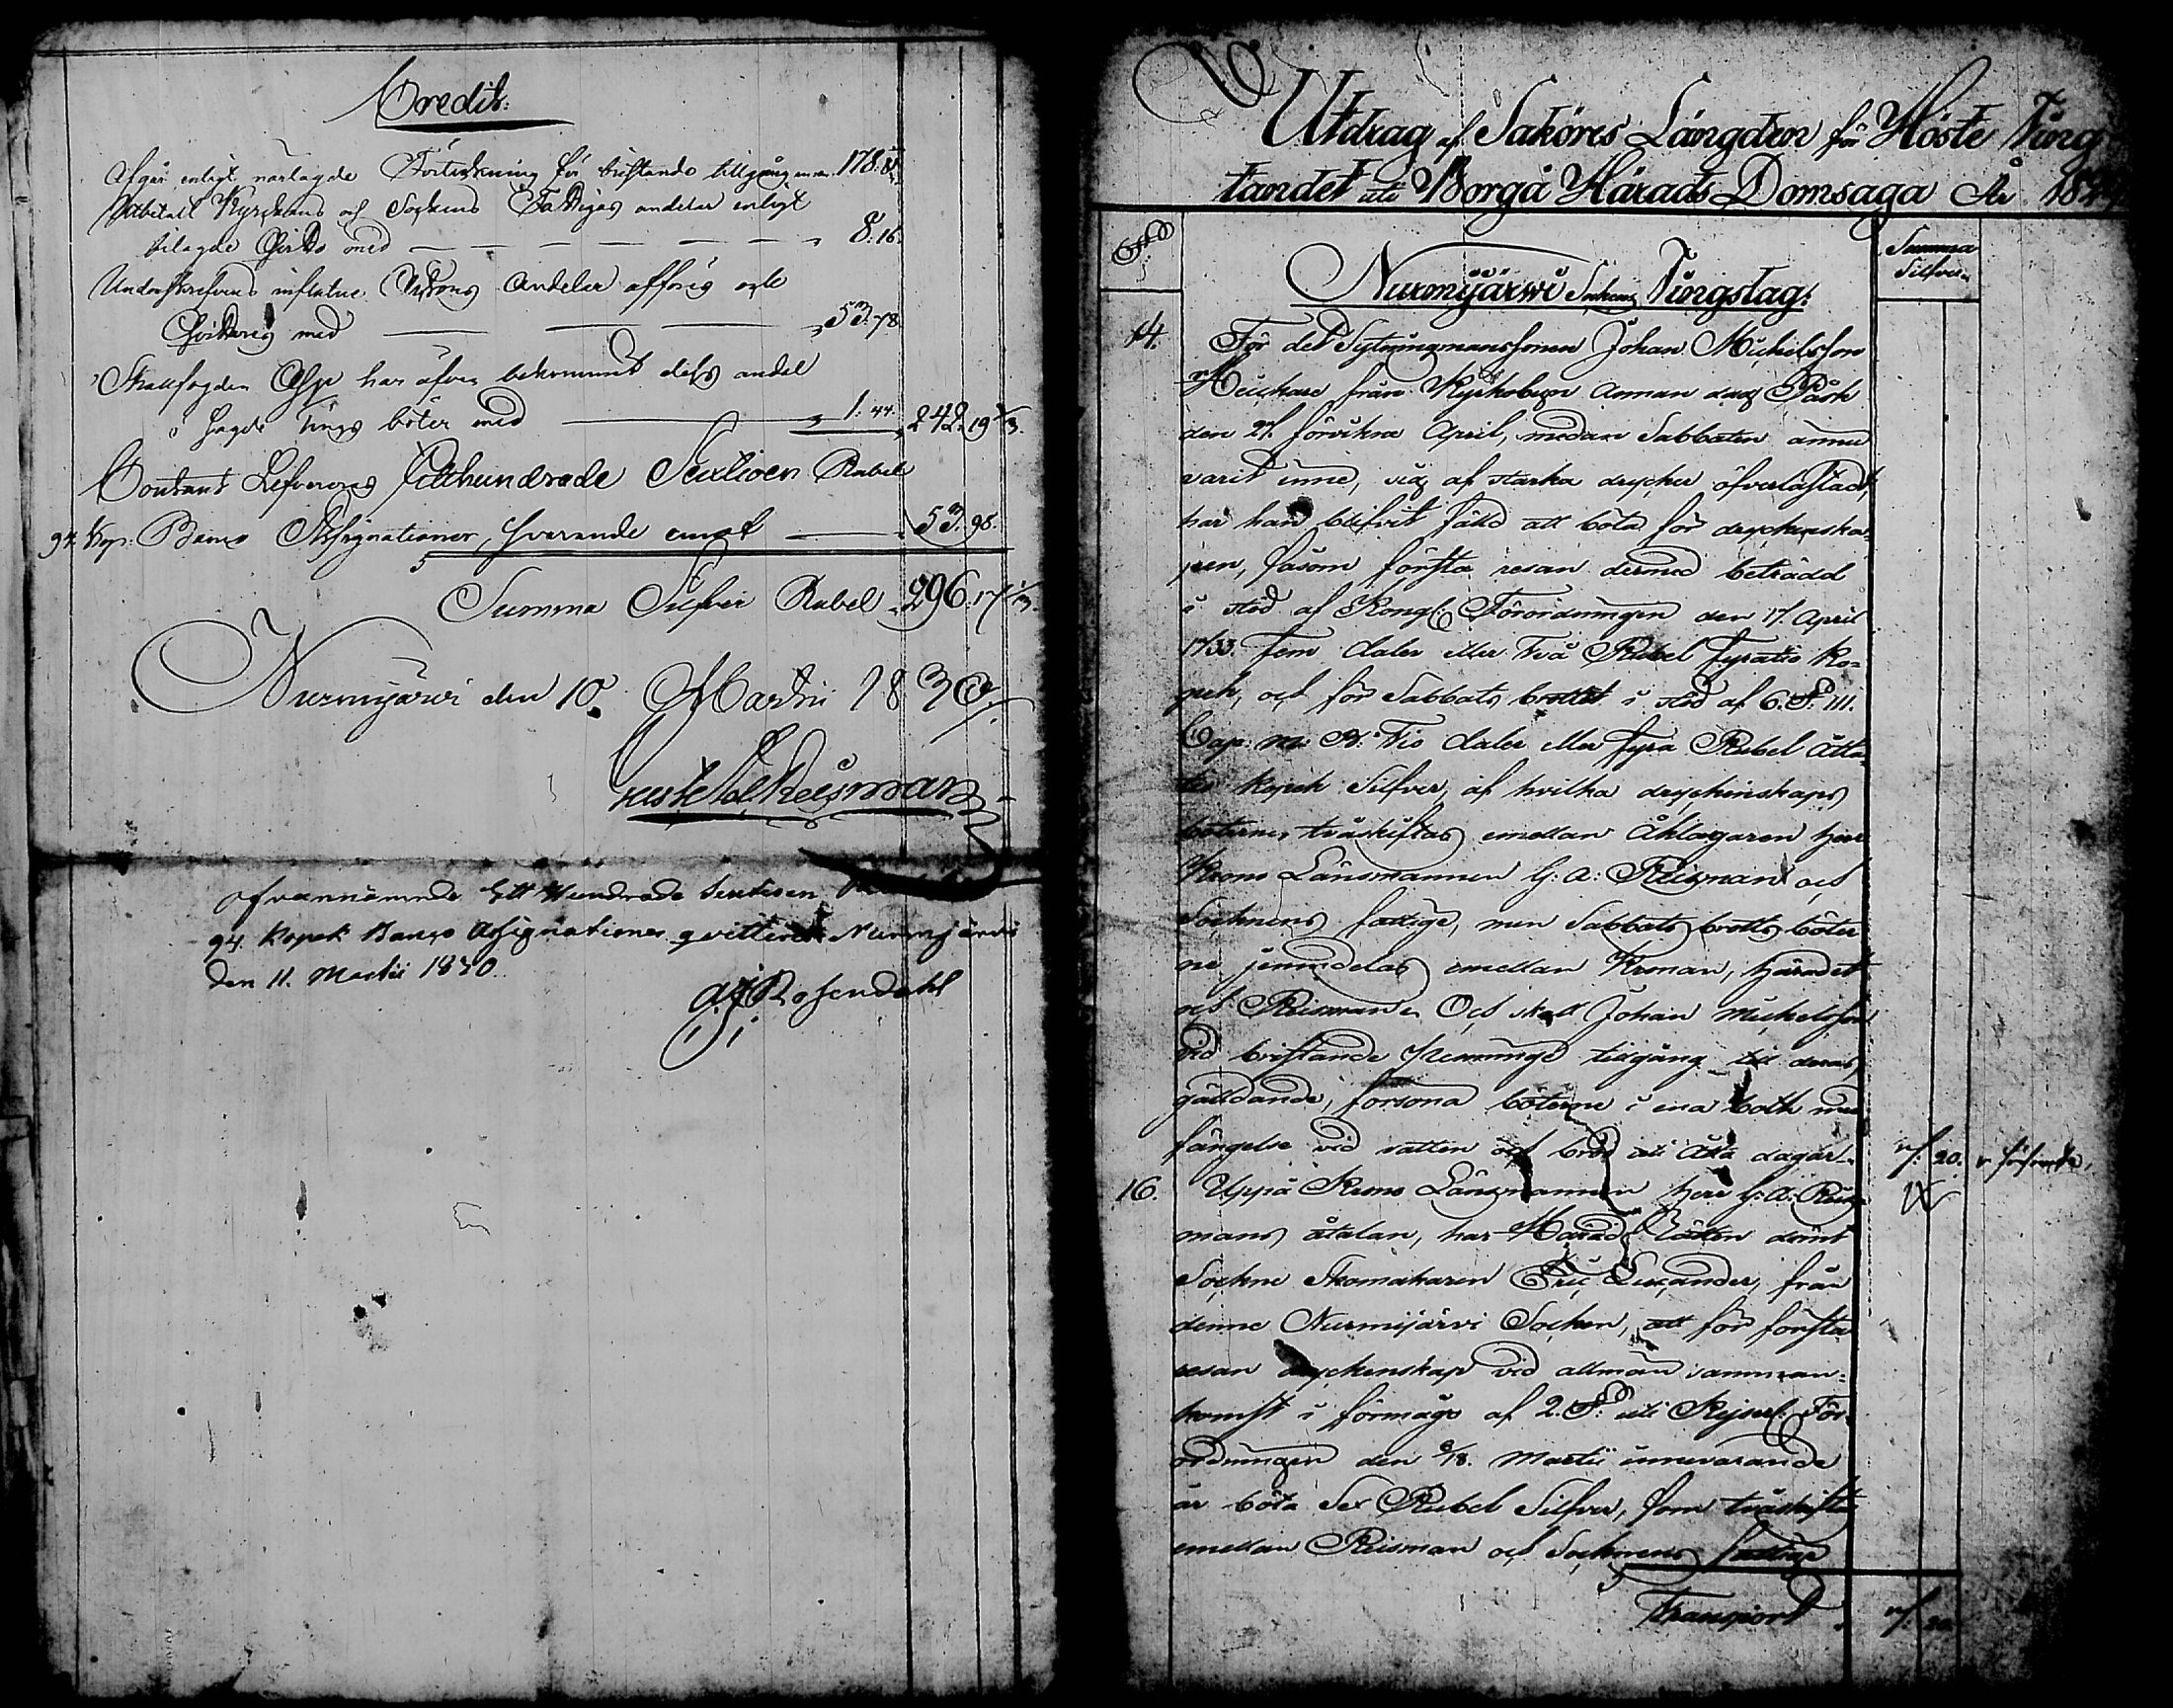 Credit:
Afgår enligt närlagde Förteckning för bristande tillgång 178:
Utbetalt Kyrckans och Sockens Fattigas andelar enligt
bilagde Qvitto med 8:16.
Underskrefvens influtne andelar afföres
Qvitteras med 53:78
Skallfogden har äfven bekommit dess andel
i sagde tings böter med 1:44. 242:19
Contant Lefvereras Etthundrade Sextioen Rubel
94. Kop: Banco Assignationer, svarande emot 53. 98.
Summa Silfver Rubel 296. 17
Nurmijärvi den 10. Martii 1830.
Reisman
Ofvannämnde Ett Hundrade Sextioen
94. Kopek Banco Assignationer qvitteras Nurmijärvi
den 11. Martii 1830.
Rosendahl
Utdrag af Saköres Längden för Höste Ting
tandet uti Borgå Härads Domsaga År
Summa
Silfver
Nurmijärwi Sockens Tingslag:
14. För det Sytningmanssonen Johan Michelsson
från Kyrkobyn annan dag Påsk
den 27. förvikne April, medan Sabbaten ännu
varit inne, sig af starka drycker öfverlastadt,
har han blifvit fälld att böta för dryckenska-
pen, såsom första resan dermed beträdd
i stöd af Kongl: Förordningen den 17. April
1733. fem daler eller Två Rubel fyratio ko-
pek, och för Sabbats brottet i stöd af 6. §. III.
Cap. M. B. Tio daler eller fyra Rubel åtta-
tio kopek Silfver, af hvilka dryckenskaps
böterne tvåskiftas emellan Åklagaren herr
Krono Länsmannen G: A: Reisman och
Socknens fattige, men Sabbats brotts böter
ne jemndelas emellan Kronan, häradet
och Reisman. Och skall Johan Michelsson
vid bristande tillgång till deras
gäldande, försona böterne i ena bott med
fängelse vid vatten och bröd uti Åtta dagar. 7. 20. försonte,
16. Uppå Krono Länsmannen herr G: A: Reis-
mans åtalan, har Härads Rätten dömt
Sockne Skomakaren Eric från
denne Nurmijärvi Socken, att för första
resan dryckenskap vid allmän samman-
komst i förmågo af 2. §. uti Kejserl: För-
ordningen den Martii innevarande
år böta Sex Rubel Silfver, som tvåskiftas
emellan Reisman och Socknens fattige
Transport 7. 20